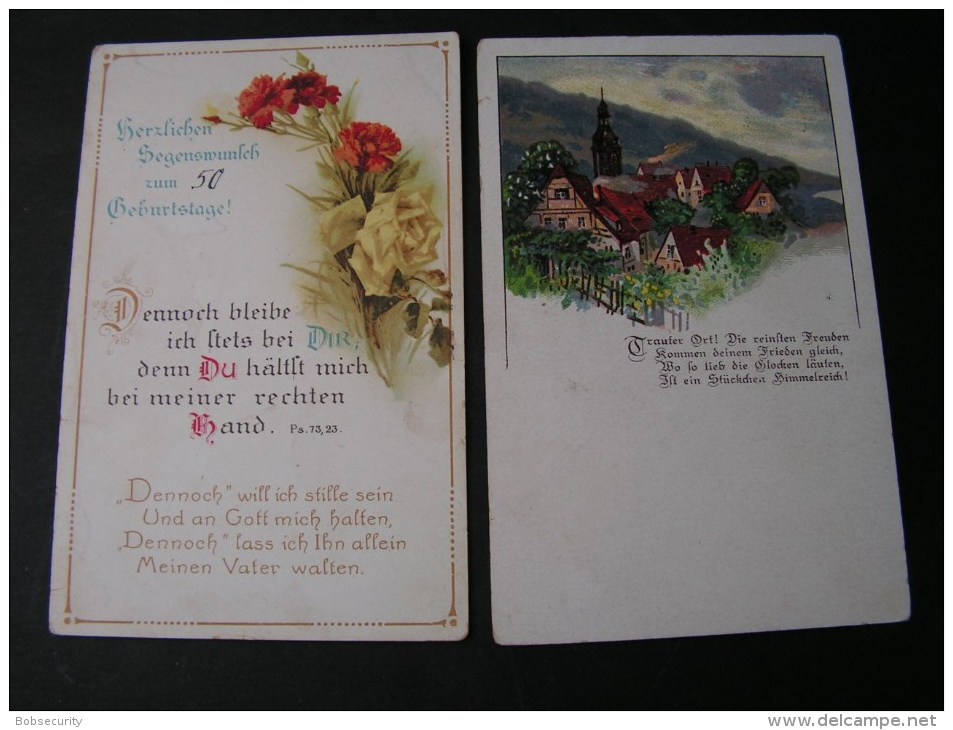 Herzlichen
Segenswunsch
zum 50
Geburtstage!
Dennoch bleibe
ich stets bei DIR;
denn DU hältst mich
bei meiner rechten
Hand. Ps. 73, 23.
„Dennoch" will ich stille sein
Und an Gott mich halten,
„Dennoch" lass ich Ihn allein
Meinen Vater walten.
Trauter Ort! Die reinsten Freuden
Kommen deinem Frieden gleich,
Wo so lieb die Glocken läuten,
Ist ein Stückchen Himmelreich!
Bobsecurity
www.delcampe.net